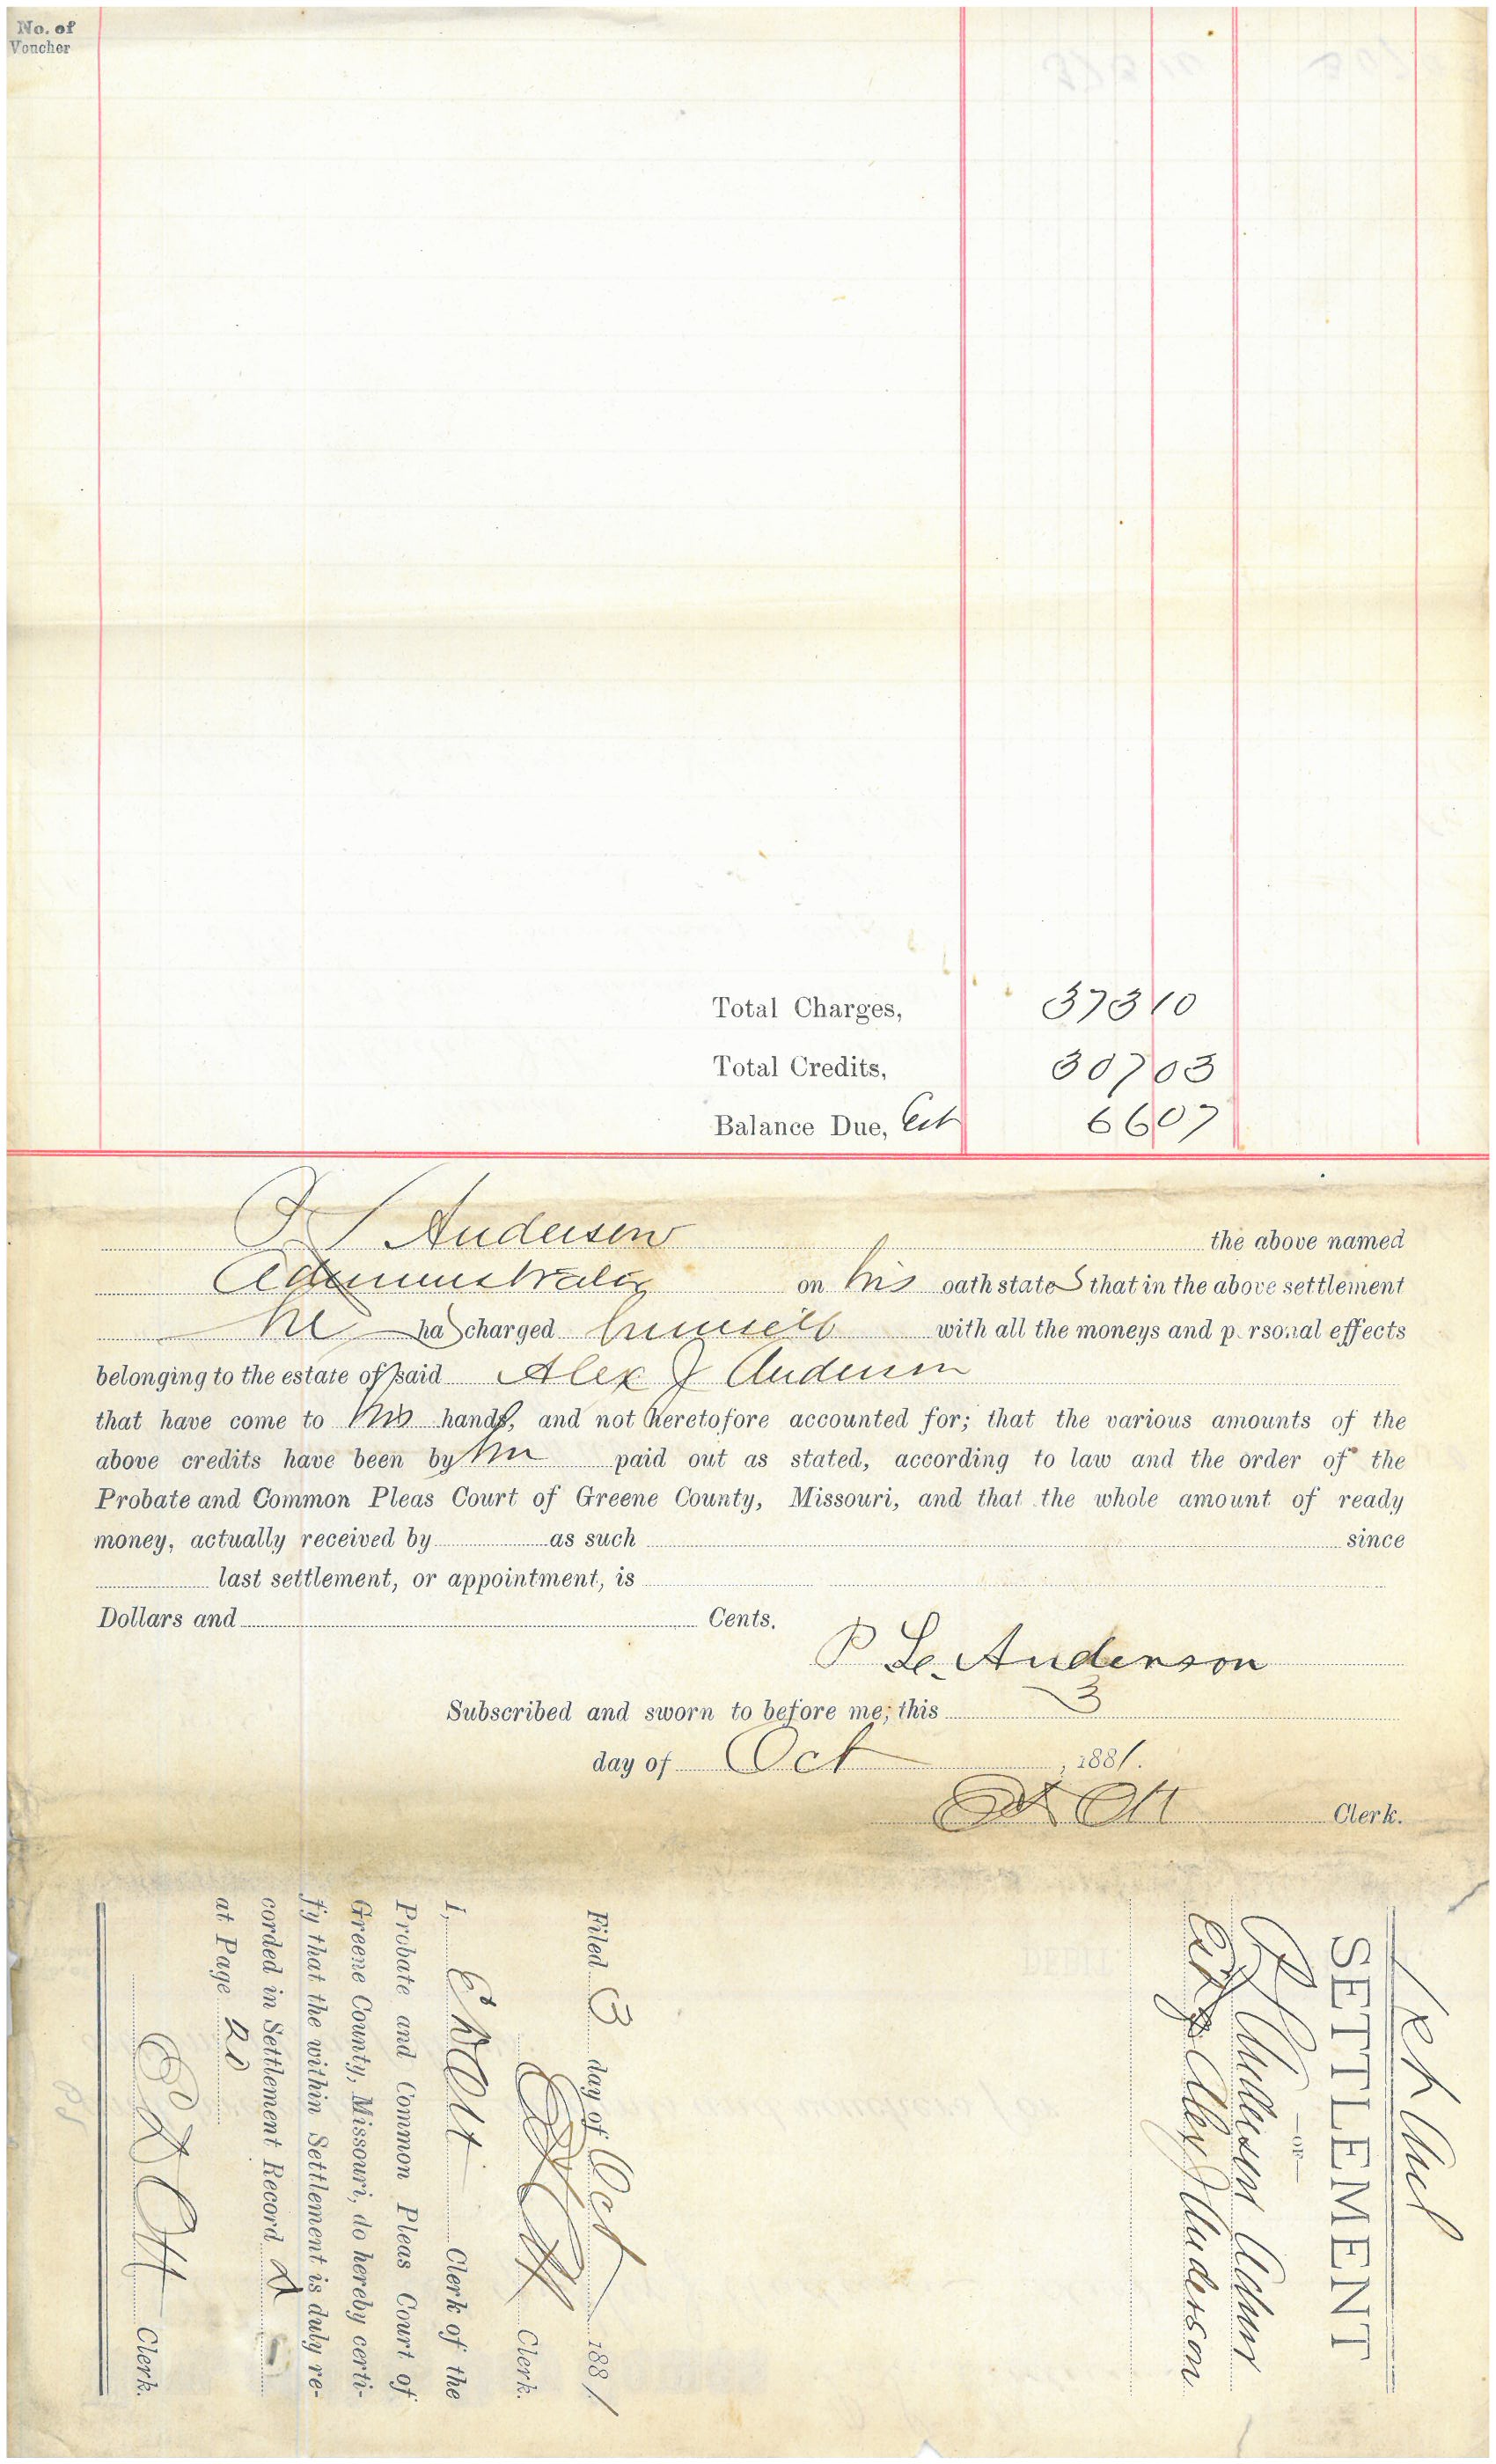 No. of
Voucher
Total Charges, 373 10
Total Credits, 307 03
Balance Due, Est 66 07
Anderson the above named
Administrator on his oath states that in the above settlement
he has charged himself with all the moneys and p rsonal effects
belonging to the estate of said Alex J Anderson
that have come to his hands, and not heretofore accounted for; that the various amounts of the
above credits have been by him paid out as stated, according to law and the order of the
Probate and Common Pleas Court of Greene County, Missouri, and that the whole amount of ready
money, actually received by as such since
last settlement, or appointment, is
Dollars and Cents.
P L. Anderson
Subscribed and sworn to before me, this 3
day of Oct , 1881.
Ott Clerk.
SETTLEMENT
—OF—
Anderson Admr
Est of Alex J Anderson
Filed 3 day of Oct 1881
Ott Clerk.
I, E D Ott Clerk of the
Probate and Common Pleas Court of
Greene County, Missouri, do hereby certi-
fy that the within Settlement is duly re-
corded in Settlement Record
at Page 20
E D Ott Clerk.